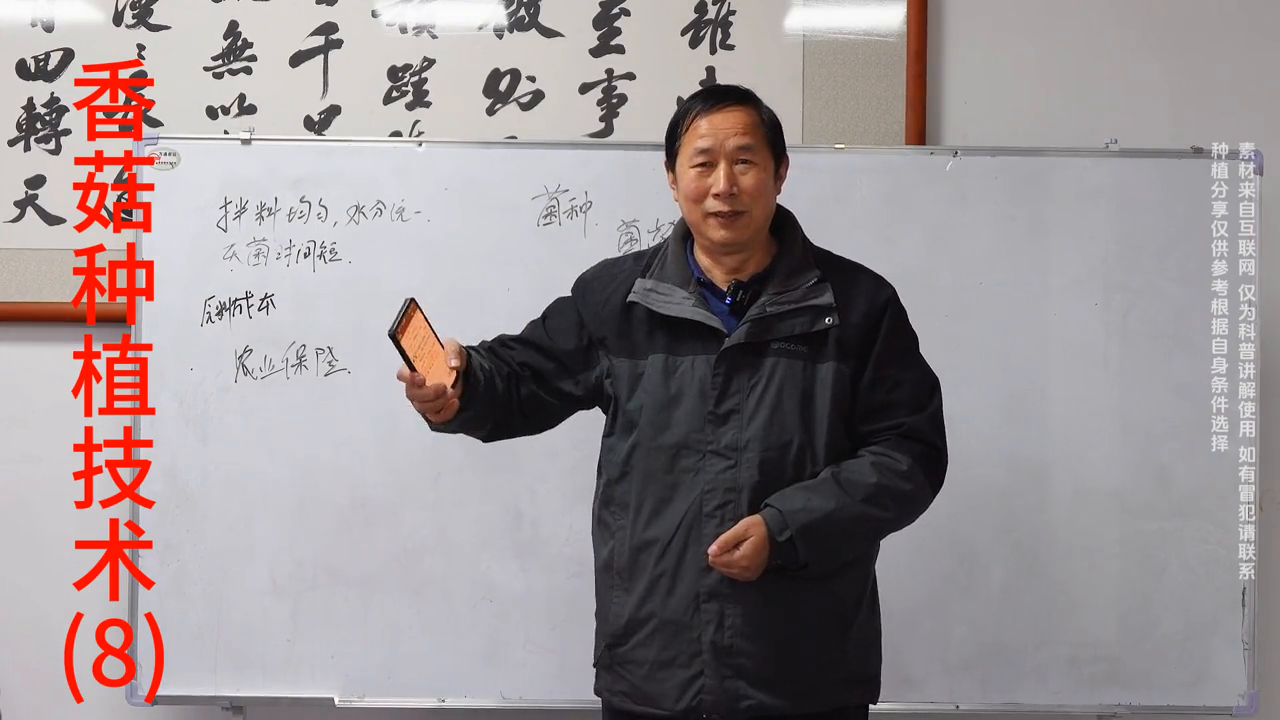 香菇种植技术(8)
拌料均匀,水分统一.
灭菌时间短.
原料成本
农业保险.
菌种.
菌龄
素材来自互联网 仅为科普讲解使用 如有冒犯请联系
种植分享仅供参考根据自身条件选择
雖
至事
微則
積跬
千里
無以
漫
回轉
天